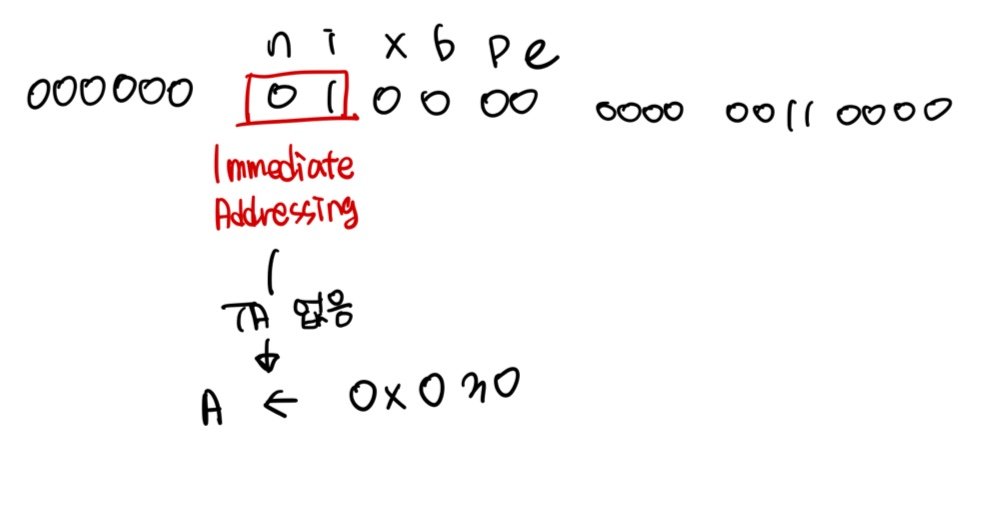 n i x b p e
000000 01 0 0 00 0000 0011 0000
Immediate
Addressing
TA 없음
↓
A ← 0x030